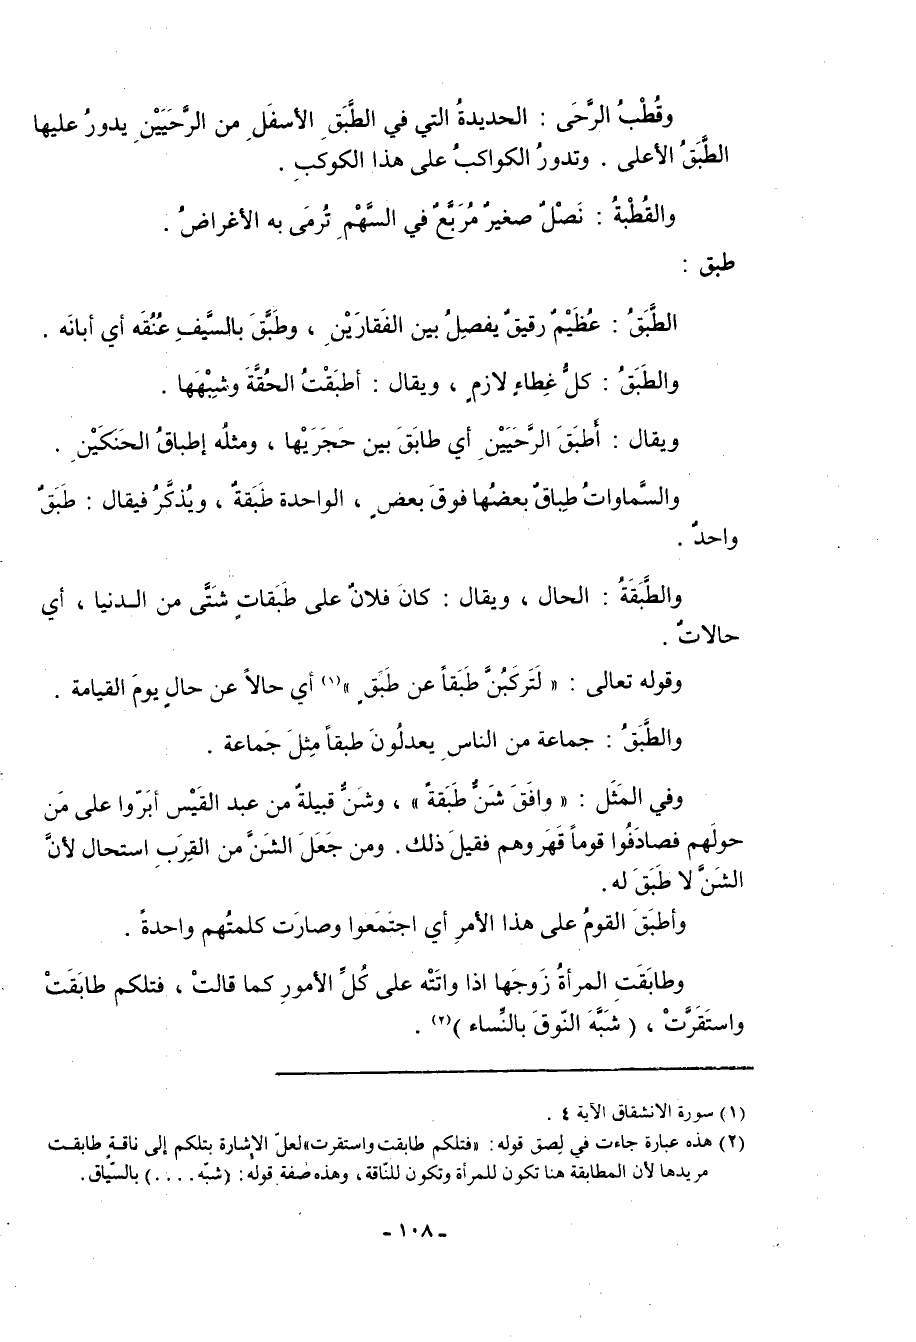 وقُطْبُ الرَّحَى : الحديدةُ التي في الطَّبَقِ الأسفَلِ من الرَّحَيَيْنِ يدورُ عليها
الطَّبَقُ الأعلى . وتدورُ الكواكبُ على هذا الكوكبِ .
والقُطْبةُ : نَصْلٌ صغيرٌ مُرَبَّعٌ في السَّهْمِ تُرمَى به الأغراضُ .
طبق :
الطَّبَقُ : عُظَيْمٌ رقيقٌ يفصِلُ بين الفَقارَيْنِ ، وطَبَّقَ بالسَّيفِ عُنُقَه أي أبانَه .
والطَبَقُ : كلُّ غِطاءٍ لازمٍ ، ويقال : أطبَقْتُ الحُقَّةَ وشِبْهَها .
ويقال : أَطبَقَ الرَّحَيَيْنِ أي طابَقَ بين حَجَرَيْها ، ومثلُه إطباقُ الحَنَكَيْنِ .
والسَّماواتُ طِباقٌ بعضُها فوقَ بعضٍ ، الواحدة طَبَقةٌ ، ويُذكَّرُ فيقال : طَبَقٌ
واحدٌ .
والطَّبَقَةُ : الحال ، ويقال : كانَ فلانٌ على طَبَقاتٍ شتَّى من الدنيا ، أي
حالاتٌ .
وقوله تعالى : « لَتَركَبُنَّ طَبَقاً عن طَبَقٍ »(١) أي حالاً عن حالٍ يومَ القيامة .
والطَّبَقُ : جماعة من الناسِ يعدلُونَ طبقاً مِثلَ جَماعة .
وفي المثَل : « وافَقَ شَنٌّ طَبَقةً » ، وشَنُّ قبيلةٌ من عبد القَيْس أبَرّوا على مَن
حولَهم فصادَفُوا قوماً قَهَروهم فقيلَ ذلك. ومن جَعَلَ الشنَّ من القِرَبِ استحال لأنَّ
الشنَّ لا طَبَقَ له.
وأطبَقَ القومُ على هذا الأمرِ أي اجتَمَعوا وصارَت كلمتُهم واحدةً .
وطابَقَتِ المرأةُ زَوجَها اذا واتَتْه على كُلِّ الأمورِ كما قالتْ ، فتلكم طابَقَتْ
واستَقَرَّتْ ، ( شَبَّهَ النّوقَ بالنِّساء )(٢) .
(١) سورة الانشقاق الآية ٤ .
(٢) هذه عبارة جاءت في لِصق قوله: «فتلكم طابقت واستقرت»لعلّ الإشارة بتلكم إلى ناقةٍ طابقت
مريدها لأن المطابقة هنا تكون للمرأة وتكون للنّاقة، وهذه صفة قوله: (شبّه ....) بالسّياق.
- ١٠٨ -